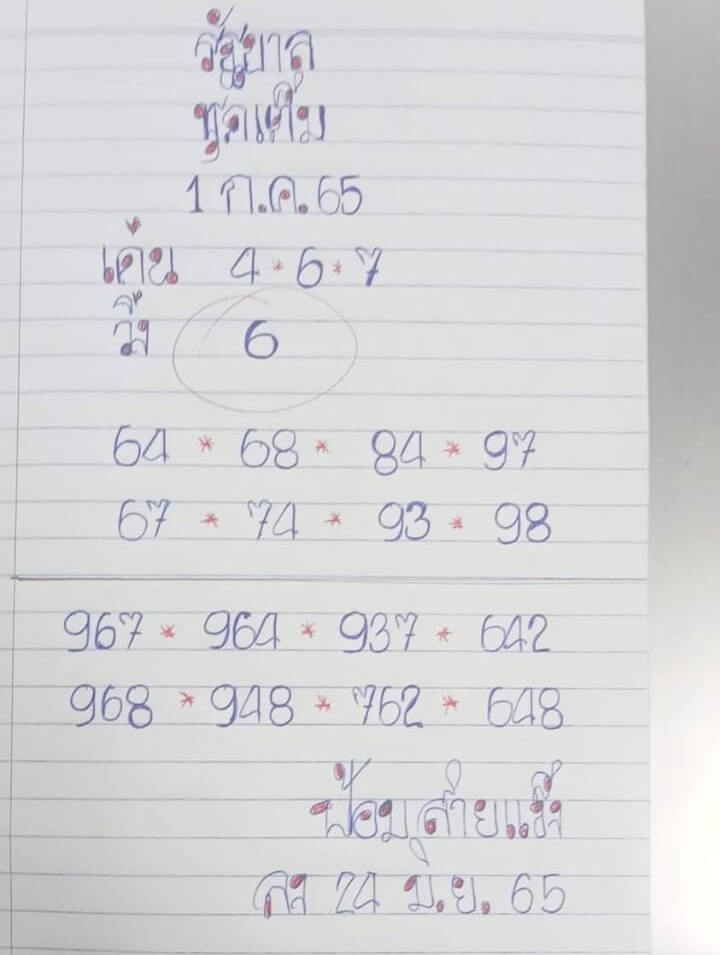 รัฐบาล
ชุดเต็ม
1 ก.ค. 65
เด่น 4 * 6 * 7
วิ่ง 6
64 * 68 * 84 * 97
67 * 74 * 93 * 98
967 * 964 * 937 * 642
968 * 948 * 762 * 648
24 มิ.ย. 65